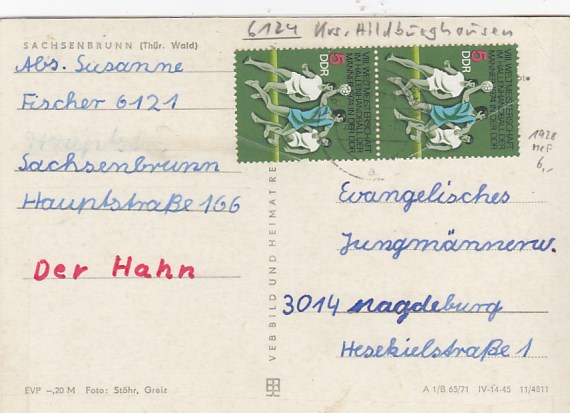 6124 Krs. Hildburghausen
SACHSENBRUNN (Thür. Wald)
Abs. Susanne
Fischer 6121
Sachsenbrunn
Hauptstraße 166
Der Hahn
EVP –,20 M Foto: Stöhr, Greiz
VEB BILD UND HEIMAT RE
5
DDR
VIII. WELTMEISTERSCHAFT
IM HALLENHANDBALL DER
MÄNNER 1974 IN DER DDR
5
DDR
VIII. WELTMEISTERSCHAFT
IM HALLENHANDBALL DER
MÄNNER 1974 IN DER DDR
1928
MeF
6,-
Evangelisches
Jungmännerw.
3014 Magdeburg
Hesekielstraße 1
A 1/B 65/71 IV-14-45 11/4811